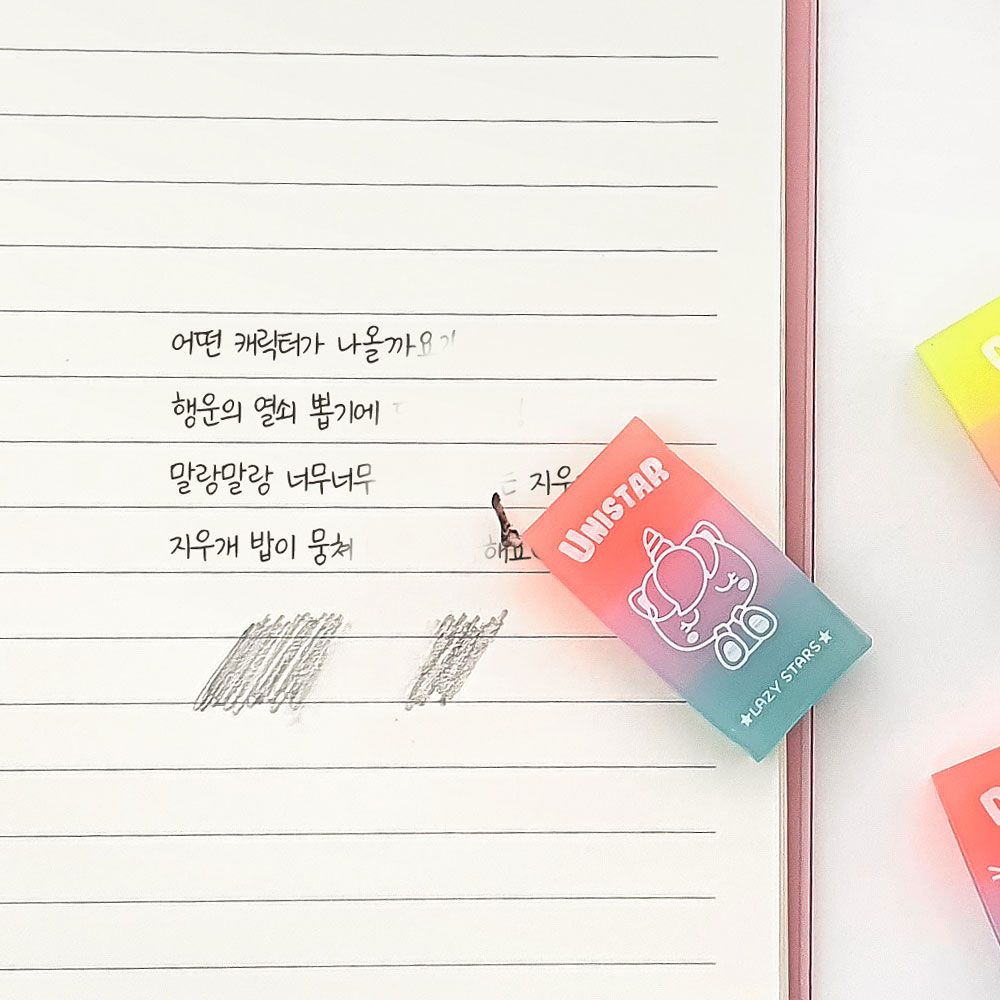 어떤 캐릭터가 나올까요
행운의 열쇠 뽑기에
말랑말랑 너무너무
지우개 밥이 뭉쳐
UNISTAR
★LAZY STARS★